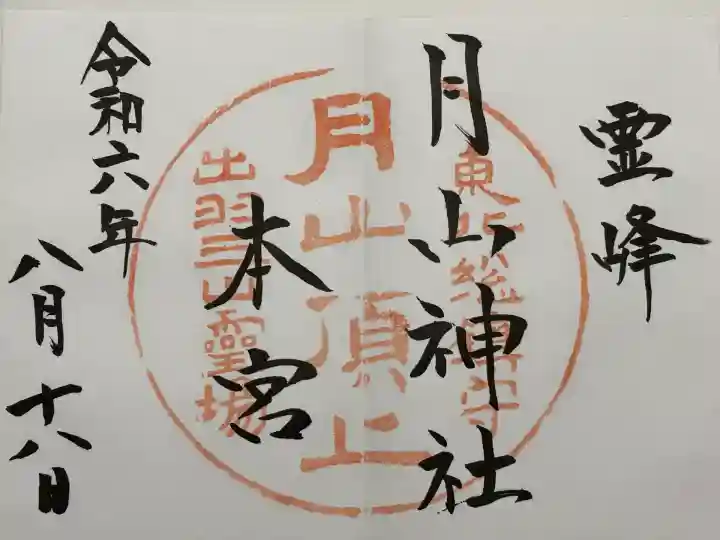 霊峰
月山神社
本宮
令和六年
八月十八日
東北総鎮守
月山頂上
出羽三山霊場